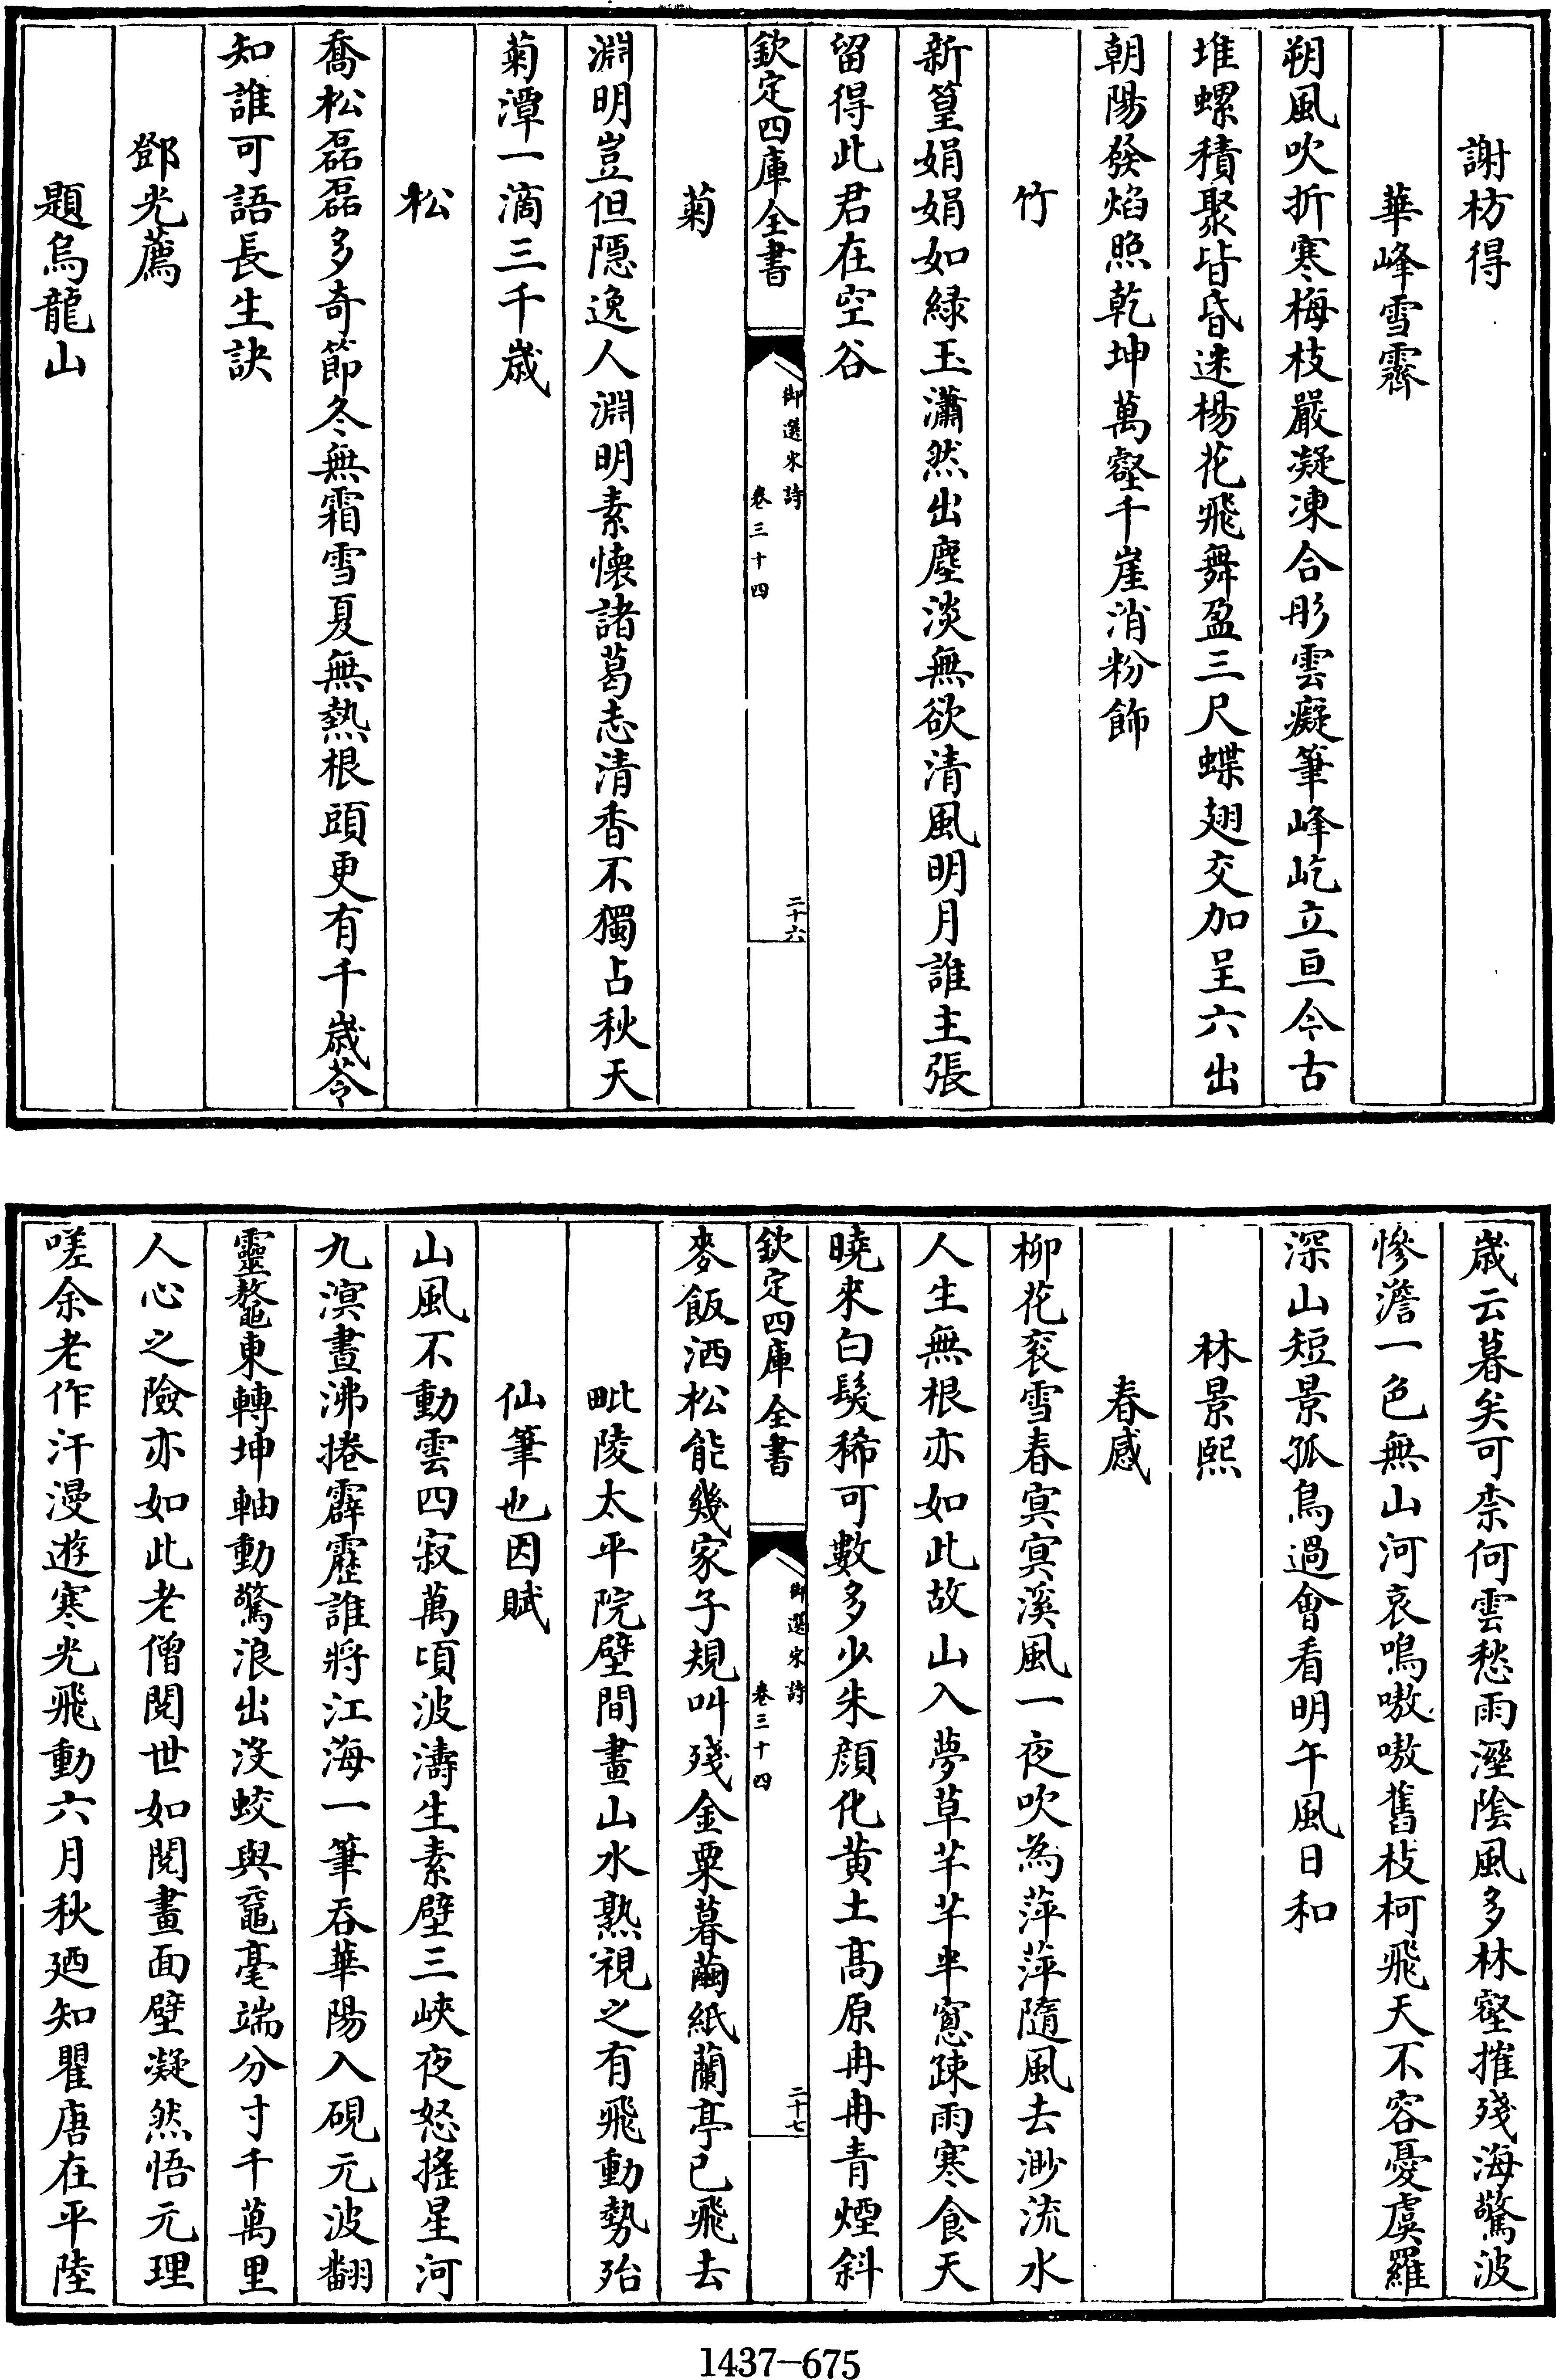 謝枋得
華峰雪霽
朔風吹折寒梅枝嚴凝凍合彤雲癡筆峰屹立亘今古
堆螺積聚皆昏迷楊花飛舞盈三尺蝶翅交加呈六出
朝陽發焰照乾坤萬壑千崖消粉飾
竹
新篁娟娟如緑玉瀟然出塵淡無欲清風明月誰主張
留得此君在空谷
欽定四庫全書
御選宋詩
卷三十四
二十六
菊
淵明豈但隱逸人淵明素懷諸葛志清香不獨占秋天
菊潭一滴三千歲
松
喬松磊磊多奇節冬無霜雪夏無熱根頭更有千歲苓
知誰可語長生訣
鄧光薦
題烏龍山
歲云暮矣可柰何雲愁雨溼陰風多林壑摧殘海驚波
慘澹一色無山河哀鳴嗷嗷舊枝柯飛天不容憂虞羅
深山短景孤鳥過會看明午風日和
林景熙
春感
柳花衮雪春冥冥溪風一夜吹為萍萍隨風去渺流水
人生無根亦如此故山入夢草芊芊半窻疎雨寒食天
曉來白髮稀可數多少朱顔化黄土高原冉冉青煙斜
欽定四庫全書
御選宋詩
卷三十四
二十七
麥飯洒松能幾家子規叫殘金粟暮繭紙蘭亭已飛去
毗陵太平院壁間畫山水熟視之有飛動勢殆
仙筆也因賦
山風不動雲四寂萬頃波濤生素壁三峽夜怒搖星河
九溟晝沸捲霹靂誰將江海一筆吞華陽入硯元波翻
靈鼇東轉坤軸動驚浪出沒蛟與黿毫端分寸千萬里
人心之險亦如此老僧閱世如閱畫面壁凝然悟元理
嗟余老作汗漫遊寒光飛動六月秋廼知瞿唐在平陸
1437-675